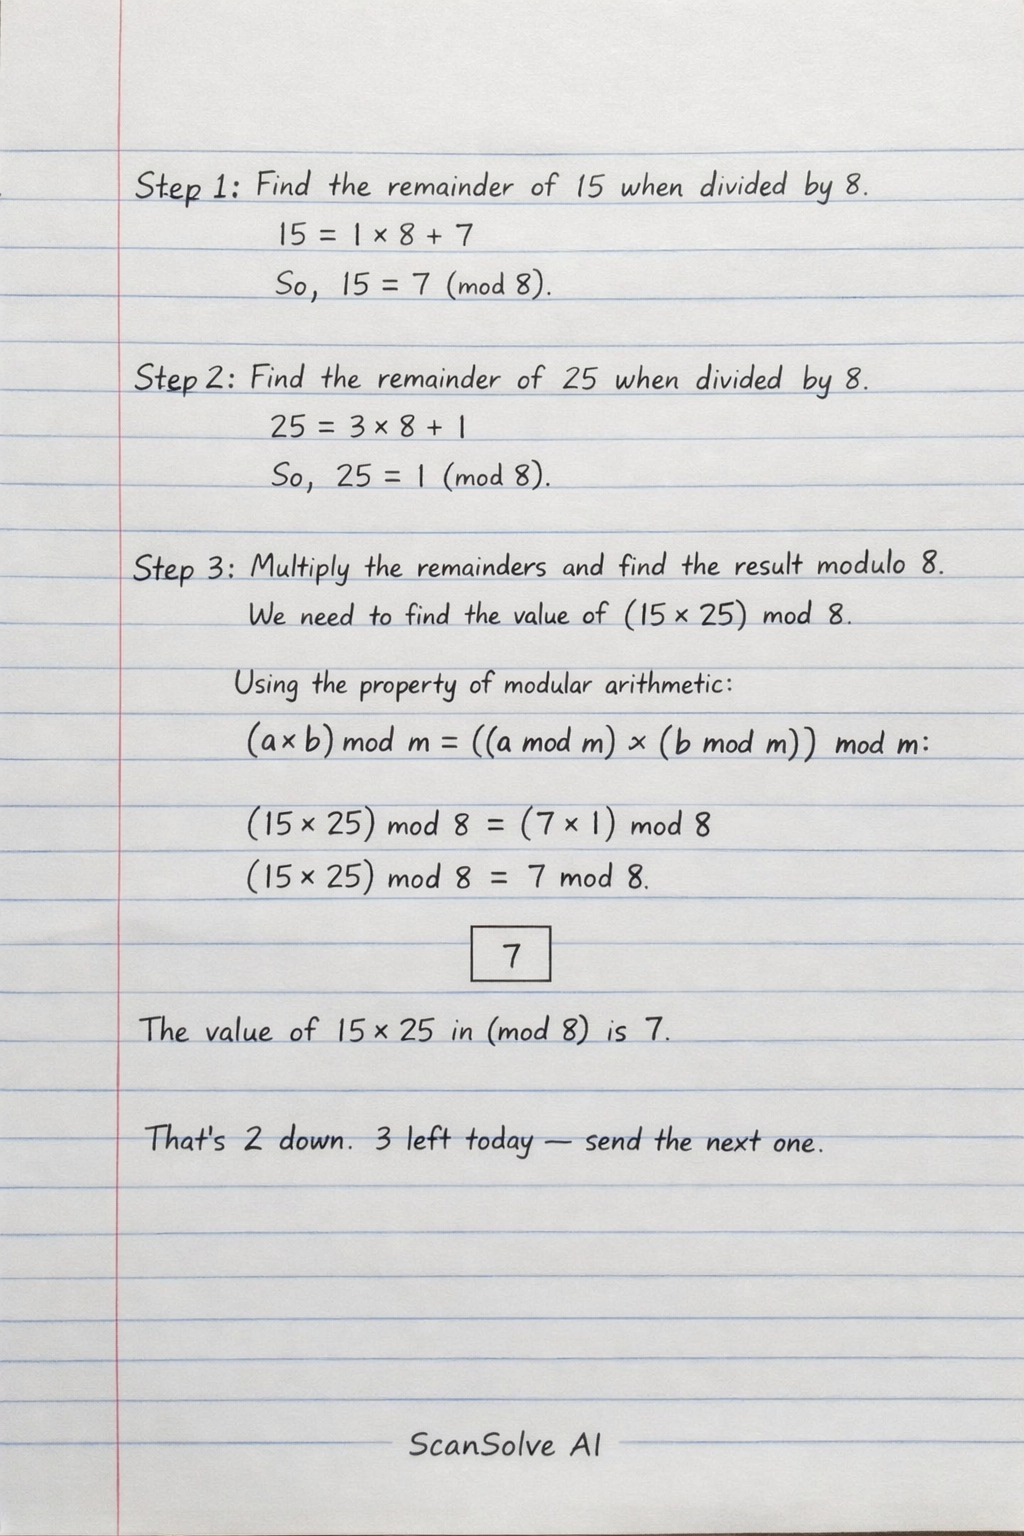 Step 1: Find the remainder of 15 when divided by 8.
15 = 1 × 8 + 7
So, 15 = 7 (mod 8).
Step 2: Find the remainder of 25 when divided by 8.
25 = 3 × 8 + 1
So, 25 = 1 (mod 8).
Step 3: Multiply the remainders and find the result modulo 8.
We need to find the value of (15 × 25) mod 8.
Using the property of modular arithmetic:
(a × b) mod m = ((a mod m) × (b mod m)) mod m:
(15 × 25) mod 8 = (7 × 1) mod 8
(15 × 25) mod 8 = 7 mod 8.
7
The value of 15 × 25 in (mod 8) is 7.
That's 2 down. 3 left today — send the next one.
ScanSolve AI